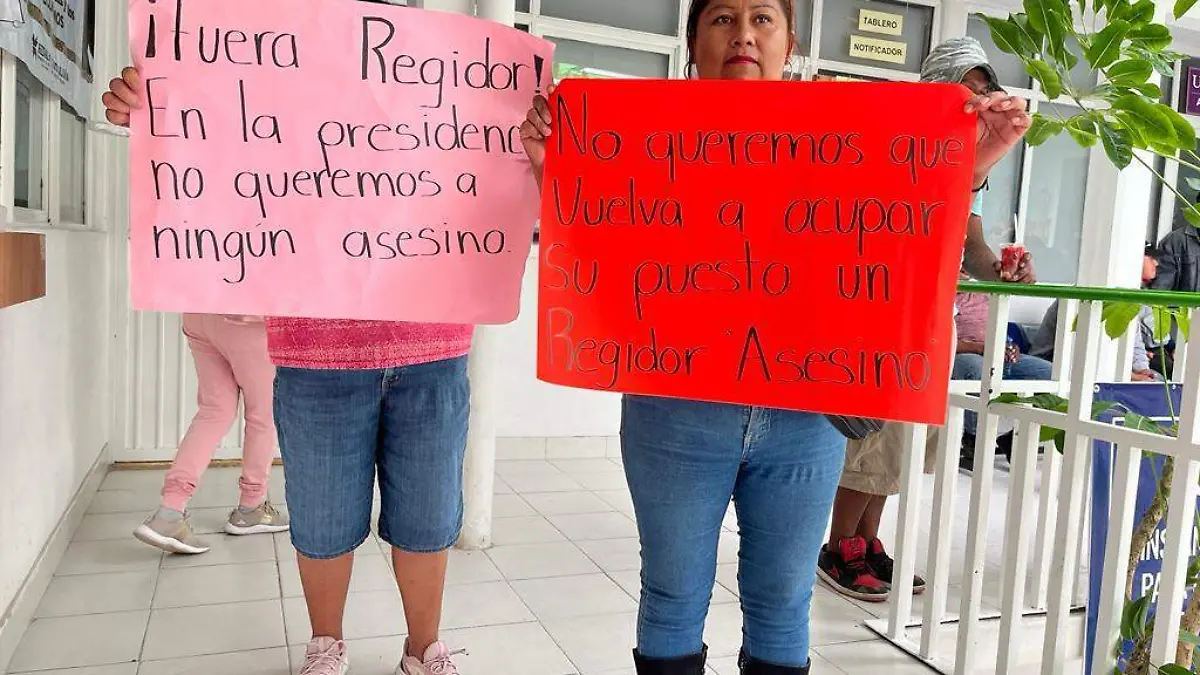 ¡fuera Regidor!
En la presidenc
no queremos a
ningún asesino.
No queremos que
Vuelva a ocupar
Su puesto un
Regidor "Asesino"
TABLERO
NOTIFICADOR